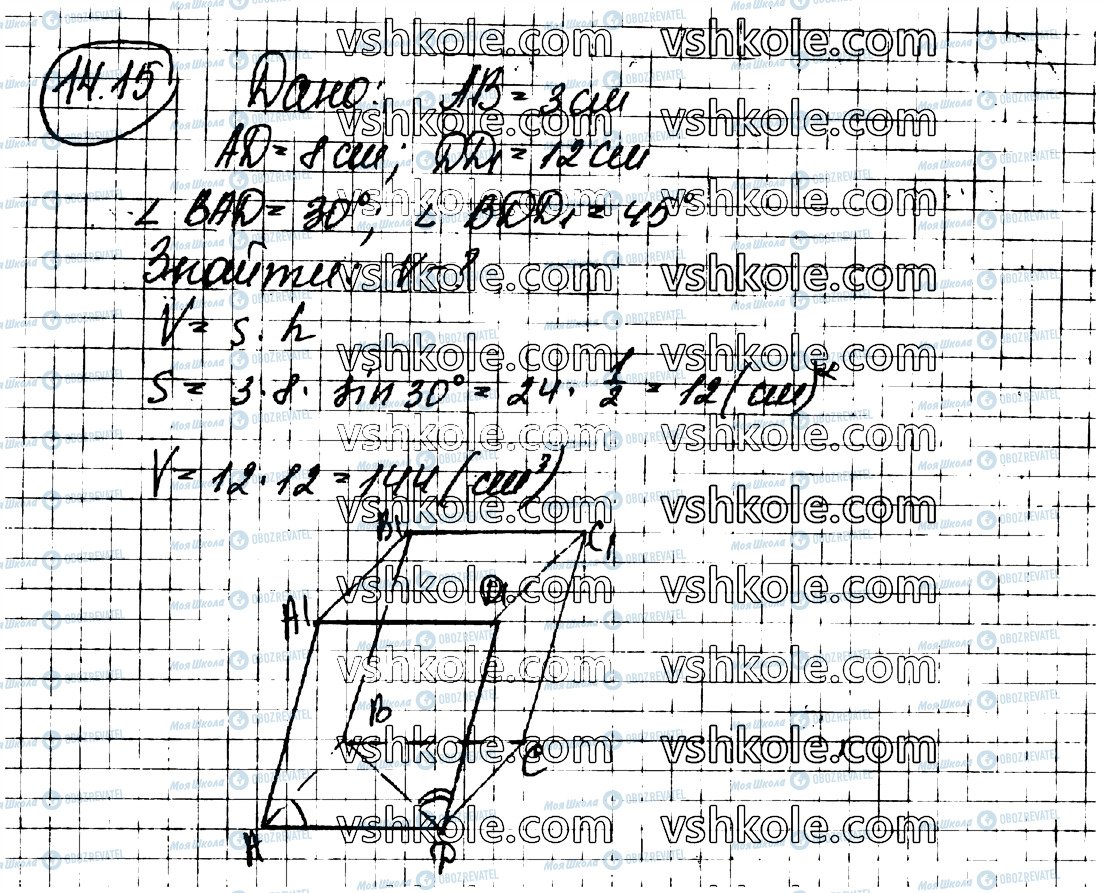 14.15
Дано: AB = 3 см
AD = 8 см; DD₁ = 12 см
∠ BAD = 30°; ∠ BDD₁ = 45°
Знайти: V - ?
V = S · h
S = 3 · 8 · sin 30° = 24 · 1/2 = 12 (см)²
V = 12 · 12 = 144 (см³)
B₁ C₁
A₁ D₁
B
C
A
D
vshkole.com
Моя Школа OBOZREVATEL